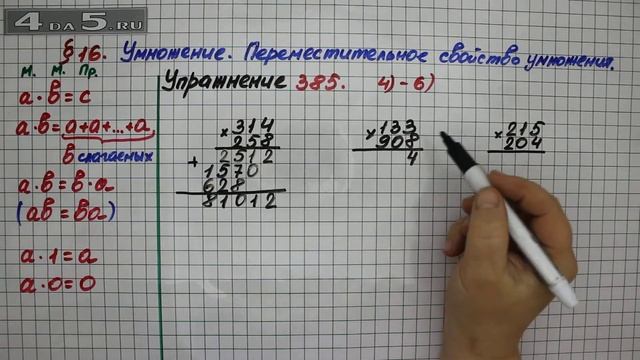 4DA5.RU
§16. Умножение. Переместительное свойство умножения.
М. М. Пр.
a·b=c
a·b=a+a+...+a
в слагаемых
a·b=b·a
(ab=ba)
a·1=a
a·0=0
Упражнение 385. 4)-6)
×314
258
+2512
1570
628
81012
×133
908
4
×215
204